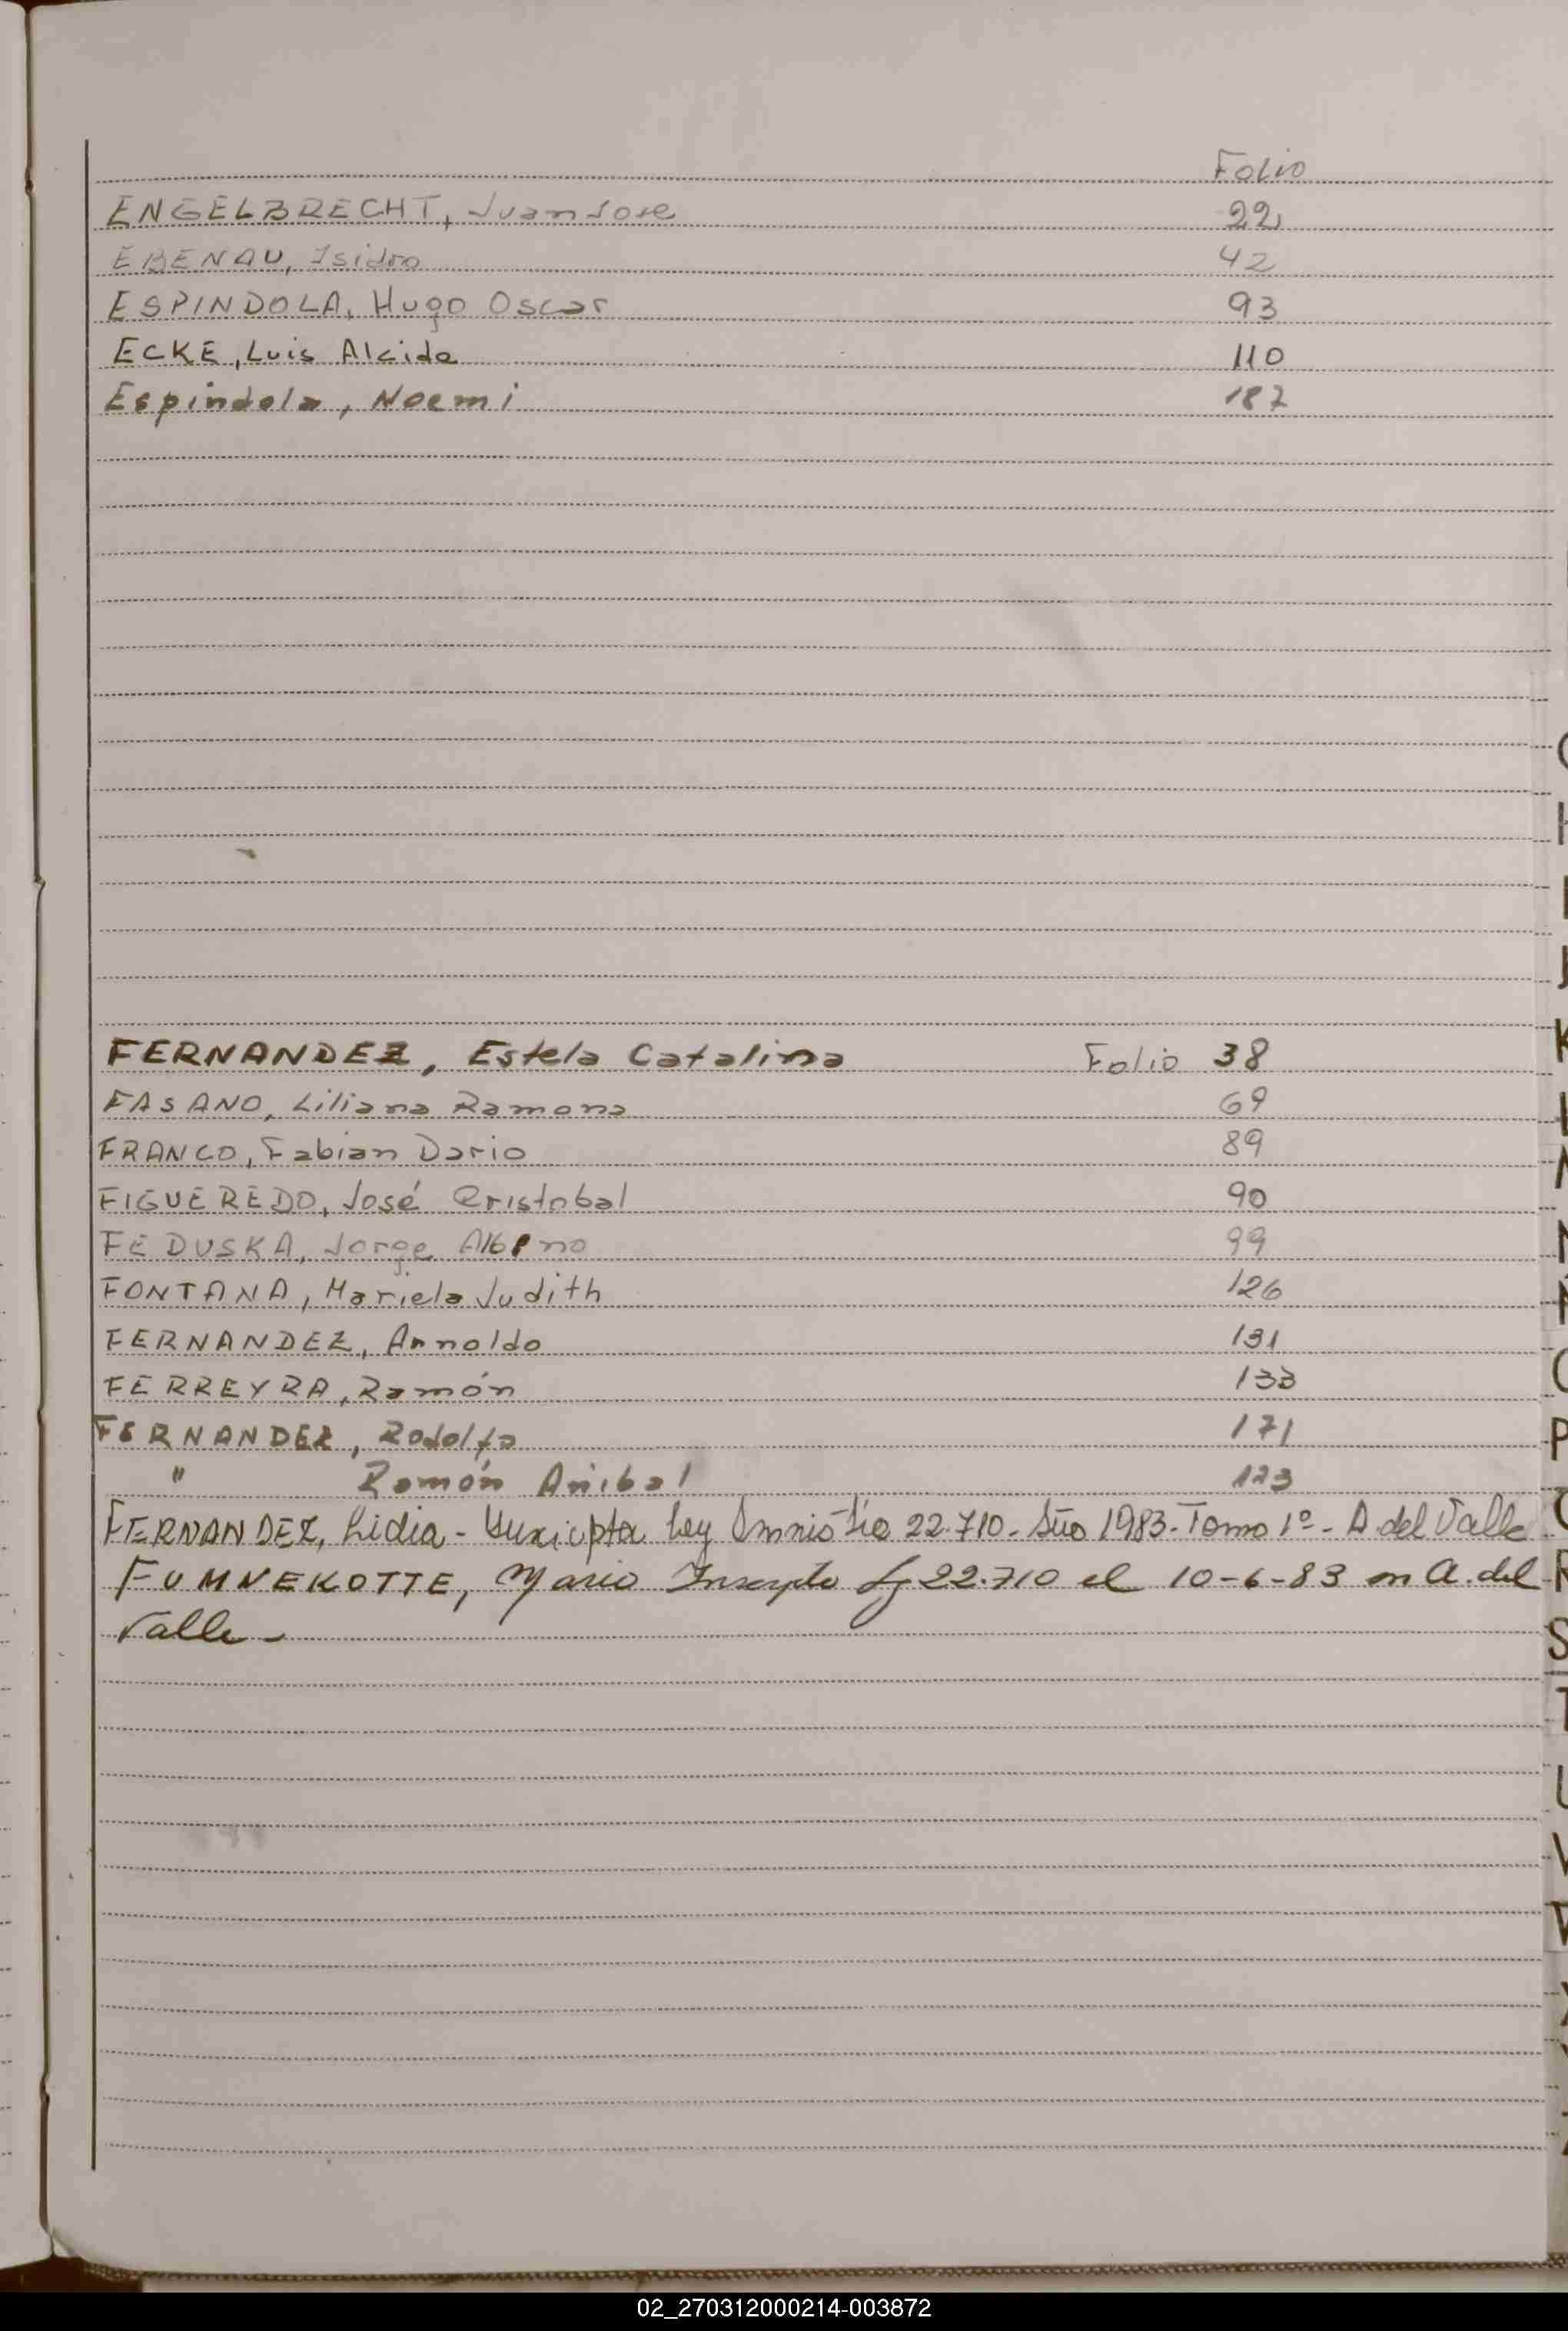 Folio
ENGELBRECHT, Juan Jose 22
EBENAU, Isidro 42
ESPINDOLA, Hugo Oscar 93
ECKE, Luis Alcide 110
Espindola, Noemi 187
FERNANDEZ, Estela Catalina Folio 38
FASANO, Liliana Ramona 69
FRANCO, Fabian Dario 89
FIGUEREDO, José Cristobal 90
FEDUSKA, Jorge Albino 99
FONTANA, Mariela Judith 126
FERNANDEZ, Arnoldo 131
FERREYRA, Ramón 133
FERNANDEZ, Rodolfo 171
" Ramón Anibal
FERNANDEZ, Lidia - Inscripta Ley Amnistia 22.710 - Año 1983 - Tomo 1º - A del Valle
FUMNEKOTTE, Mario Inscripto Ley 22.710 el 10-6-83 en A. del
Valle -
K
P
R
S
02_270312000214-003872